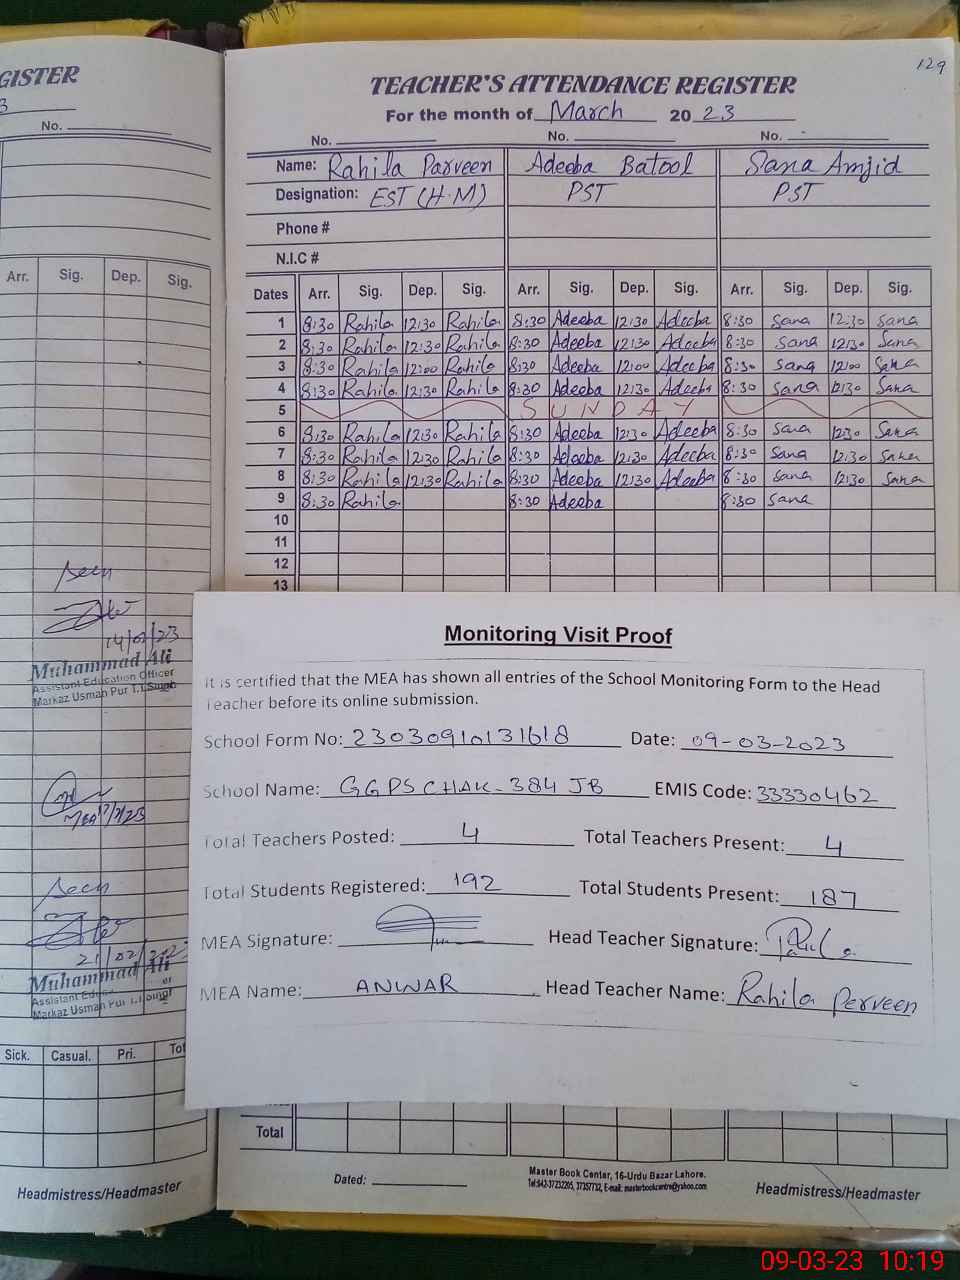 GISTER
3
No.
Arr. Sig. Dep. Sig.
Seen
14/02/23
Muhammad Ali
Assistant Education Officer
Markaz Usman Pur T.T.Singh
MEA
Seen
21/02/
Muhammad Ali
Assistant
Markaz Usman Pur T.T.Singh
Sick. Casual. Pri. Tot
Headmistress/Headmaster
129
TEACHER'S ATTENDANCE REGISTER
For the month of March 2023
No. No. No.
Name: Rahila Parveen Adeeba Batool Sana Amjid
Designation: EST (H.M) PST PST
Phone #
N.I.C #
Dates Arr. Sig. Dep. Sig. Arr. Sig. Dep. Sig. Arr. Sig. Dep. Sig.
1 8:30 Rahila 12:30 Rahila 8:30 Adeeba 12:30 Adeeba 8:30 Sana 12:30 Sana
2 8:30 Rahila 12:30 Rahila 8:30 Adeeba 12:30 Adeeba 8:30 Sana 12:30 Sana
3 8:30 Rahila 12:00 Rahila 8:30 Adeeba 12:00 Adeeba 8:30 Sana 12:00 Sana
4 8:30 Rahila 12:30 Rahila 8:30 Adeeba 12:30 Adeeba 8:30 Sana 12:30 Sana
5 SUNDAY
6 8:30 Rahila 12:30 Rahila 8:30 Adeeba 12:30 Adeeba 8:30 Sana 12:30 Sana
7 8:30 Rahila 12:30 Rahila 8:30 Adeeba 12:30 Adeeba 8:30 Sana 12:30 Sana
8 8:30 Rahila 12:30 Rahila 8:30 Adeeba 12:30 Adeeba 8:30 Sana 12:30 Sana
9 8:30 Rahila 8:30 Adeeba 8:30 Sana
10
11
12
13
Monitoring Visit Proof
It is certified that the MEA has shown all entries of the School Monitoring Form to the Head
Teacher before its online submission.
School Form No: 23030910131618 Date: 09-03-2023
School Name: GGPS CHAK-384 JB EMIS Code: 33330462
Total Teachers Posted: 4 Total Teachers Present: 4
Total Students Registered: 192 Total Students Present: 187
MEA Signature: Head Teacher Signature:
MEA Name: ANWAR Head Teacher Name: Rahila Perveen
Total
Dated: Master Book Center, 16-Urdu Bazar Lahore.
Tel:042-37232205, 37357732, E-mail: masterbookcentre@yahoo.com
Headmistress/Headmaster
09-03-23 10:19